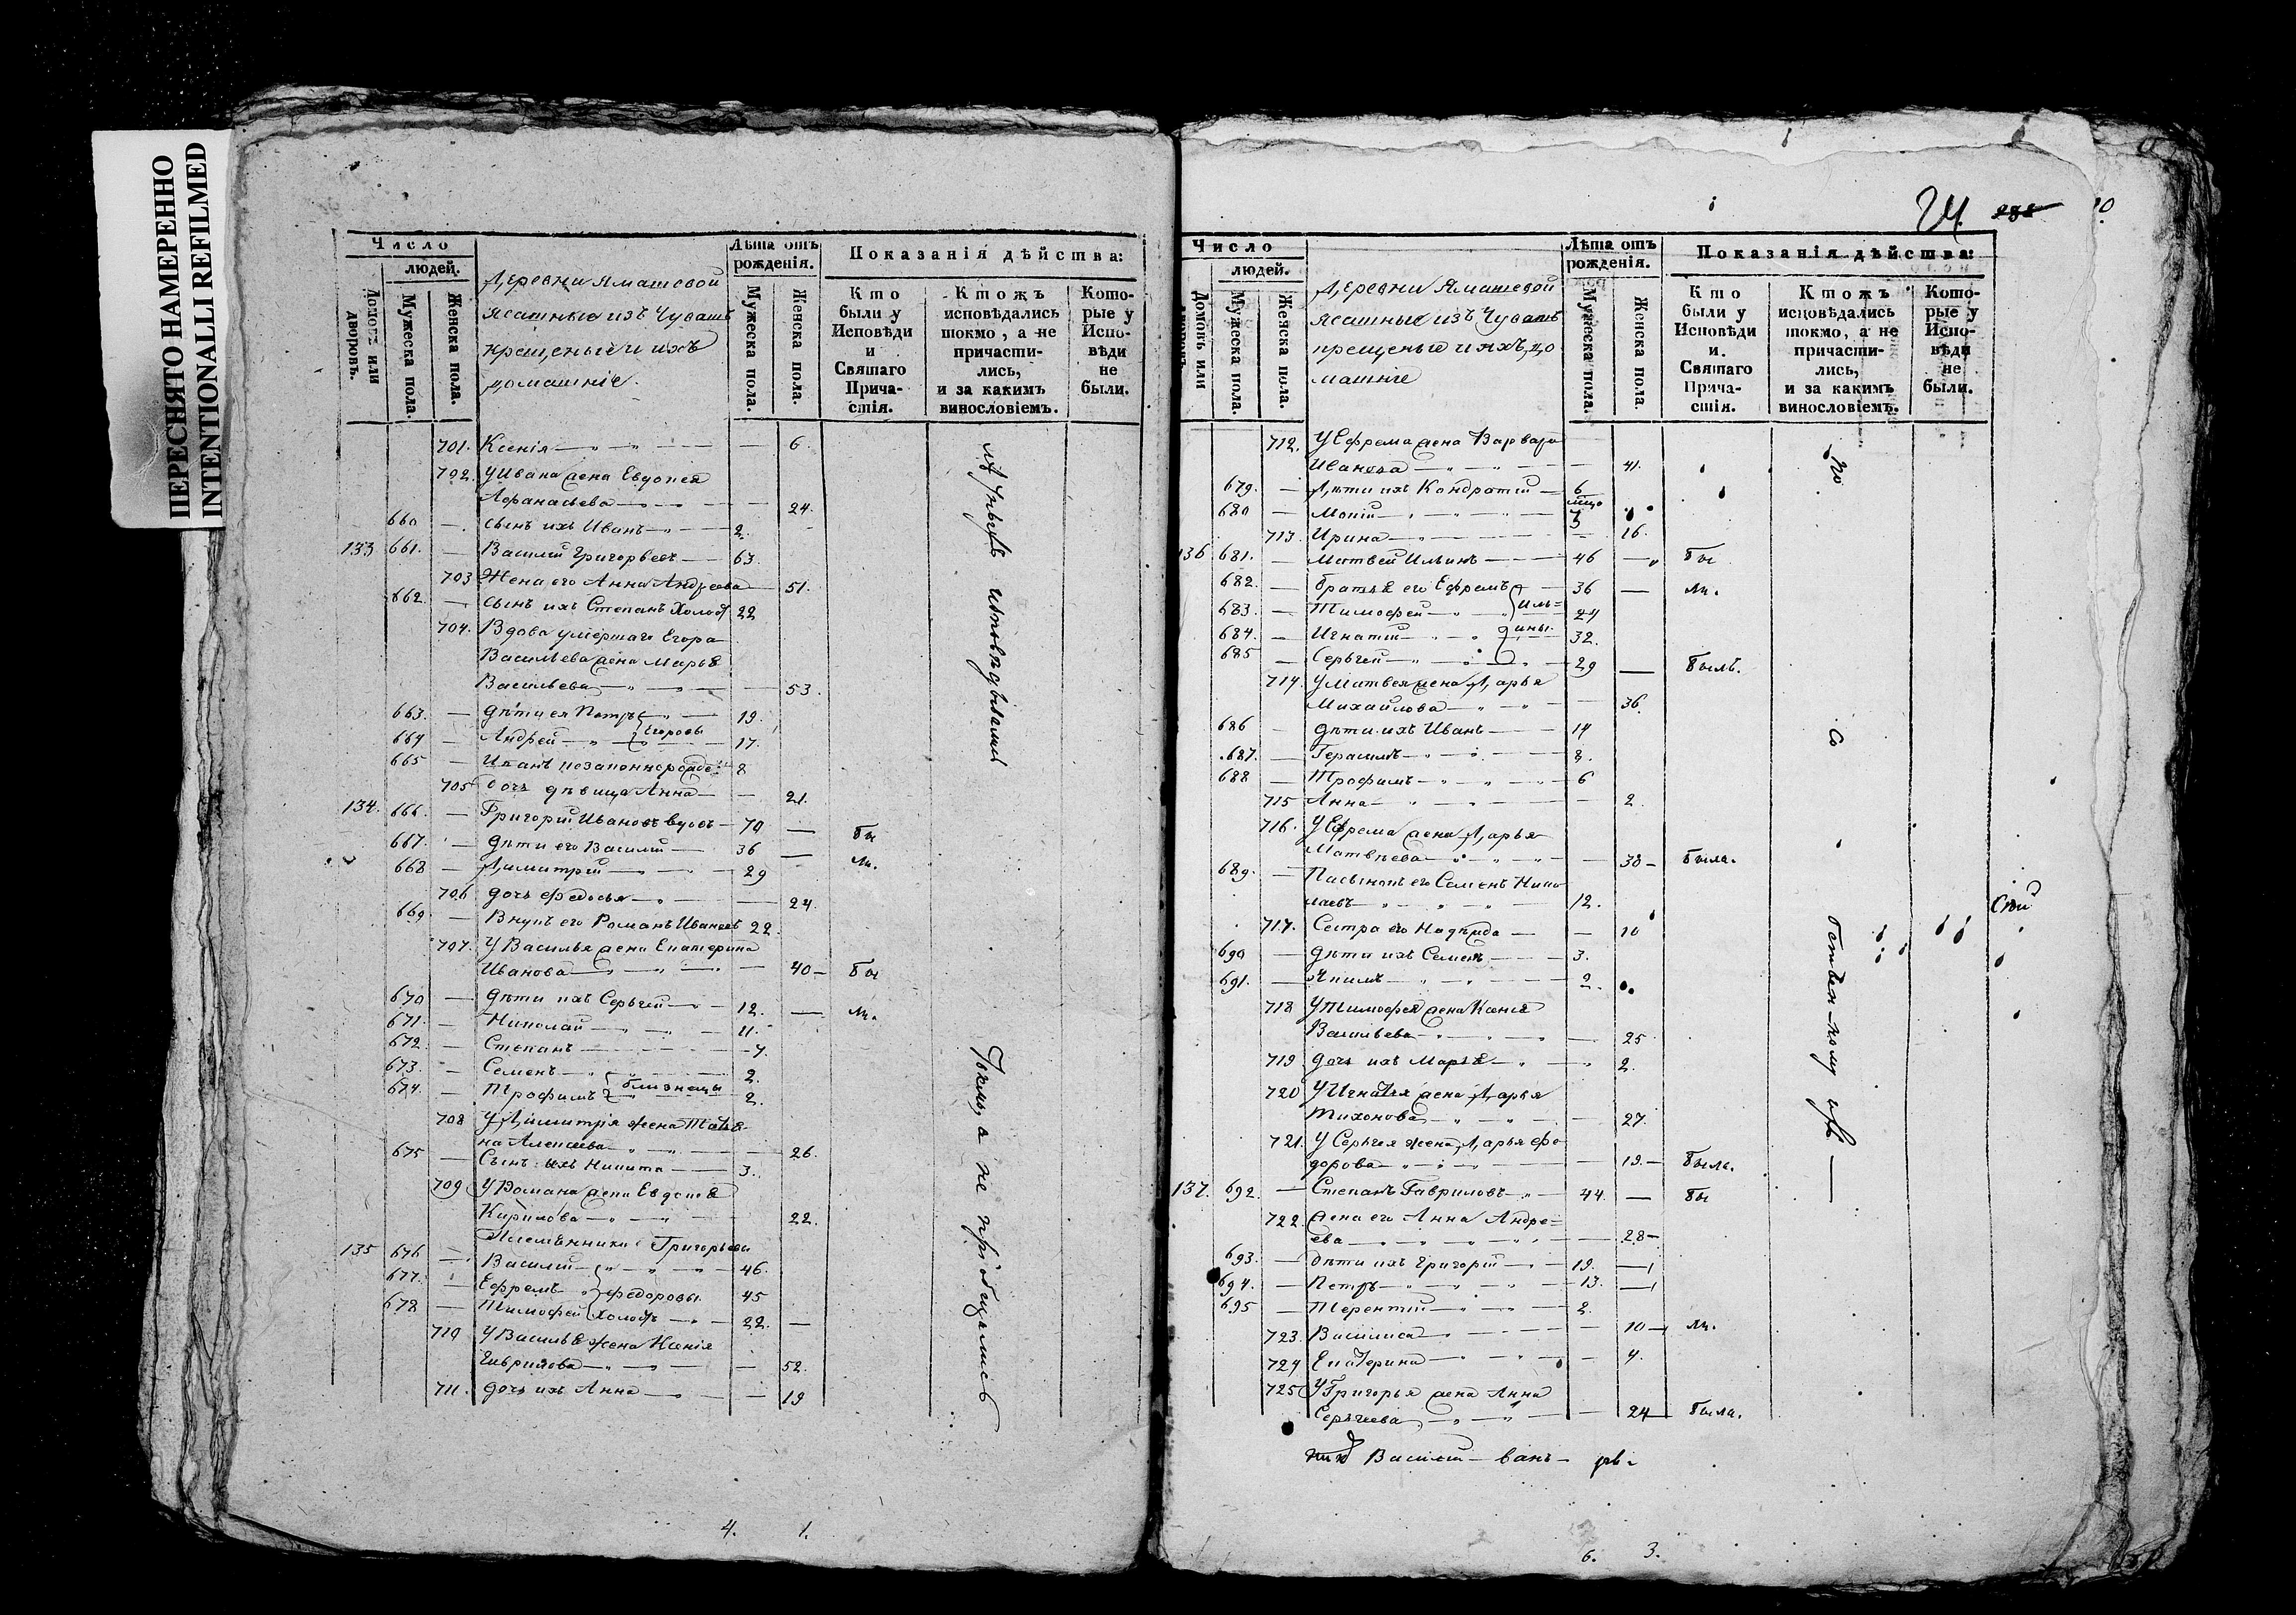 ПЕРЕСНЯТО НАМЕРЕННО
INTENTIONALLI REFILMED
Число
людей.
Домовъ или дворовъ.
Мужеска пола.
Женска пола.
Деревни Ямашевой
ясашные изъ Чувашъ
крещеные и ихъ
домашніе.
Лѣта отъ рожденія.
Мужеска пола.
Женска пола.
Показанія дѣйства:
Кто были у Исповѣди и Святаго Прича-стія.
Ктожъ исповѣдались токмо, а не причасти-лись, и за какимъ винословіемъ.
Кото-рые у Испо-вѣди не были.
701. Ксенія — 6.
702. У Ивана жена Евдокея
Афанасьева — 24.
660 — сынъ ихъ Иванъ — 2.
133 661. — Василій Григорьевъ — 63.
703 Жена его Анна Андреева 51.
662. — сынъ ихъ Степанъ Холостъ 22
704. Вдова умершаго Егора
Васильева жена Марья
Васильева — 53.
663. — дѣти ея Петръ — 19.
664 — Андрей — Егоровы — 17.
665 — Иванъ 8
705 дочь дѣвица Анна — 21.
134. 666. — Григорій Ивановъ вдовъ — 70 — бы
667. — дѣти его Василій — 36 —
668 — Димитрій — 29 ли.
706 дочь Федосья — 24.
669. — Внукъ его Романъ Ивановъ 22.
707. У Василья жена Екатерина
Иванова — 40 — бы
670 — дѣти ихъ Сергѣй — 12. — ли.
671. — Николай — 11.
672. — Степанъ — 7.
673. — Семенъ — 2.
674. — Трофимъ близнецы 2.
708 У Димитрія жена Татья-
на Алексѣева — 26.
675 — Сынъ ихъ Никита — 3.
709 У Романа жена Евдокія
Кирилова — 22.
Племянники Григорьевы
135 676 — Василій — 46.
677. — Ефремъ Федоровы 45
678 — Тимофей холостъ — 22. —
710 У Василья жена Ксенія
Гаврилова — 52.
711. дочь ихъ Анна — 19
исповѣдались
токмо, а не пріобщались
4. 1.
24
Число
людей.
Домовъ или дворовъ.
Мужеска пола.
Женска пола.
Деревни Ямашевой
ясашные изъ Чувашъ
крещеные и ихъ до
машніе
Лѣта отъ рожденія.
Мужеска пола.
Женска пола.
Показанія дѣйства:
Кто были у Исповѣди и Святаго Прича-стія.
Ктожъ исповѣдались токмо, а не причасти-лись, и за какимъ винословіемъ.
Кото-рые у Испо-вѣди не были.
712. У Ефрема жена Варвара
Иванова — 41.
679. — Дѣти ихъ Кондратій — 6
680 — Мокій — 3
713. Ирина — 16.
136 681. — Матвей Ильинъ — 46 — бы
682. — братья его Ефремъ — 36 — ли.
683. — Тимофей — Иль- 24
684. — Игнатій — ины. 32.
685 — Сергѣй — 29 — былъ.
714. У Матвея жена Дарья
Михайлова — 36.
686 — дѣти ихъ Иванъ — 14
687. — Герасимъ — 8.
688 — Трофимъ — 6
715 Анна — 2.
716. У Ефрема жена Дарья
Матвѣева — 38 — была.
689. — Пасынокъ его Семенъ Нико
лаевъ — 12.
717. Сестра его Надежда — 10
690 — дѣти ихъ Семенъ — 3.
691. — Якимъ — 2.
718 У Тимофея жена Ксенія
Васильева — 25
719 дочь ихъ Марья — 2.
720 У Игнатья жена Дарья
Тихонова — 27.
721. У Сергѣя жена Дарья Фе
дорова — 19. — была.
137. 692. — Степанъ Гавриловъ — 44. — бы
722. жена его Анна Андре-
ева — 28 —
693. — дѣти ихъ Григорій — 19. —
694. — Петръ — 13. —
695 — Терентій — 2.
723. Василиса — 10 — ли.
724 Екатерина — 4.
725 У Григорья жена Анна
Сергѣева — 24 — была.
по
со
Василій
6. 3.